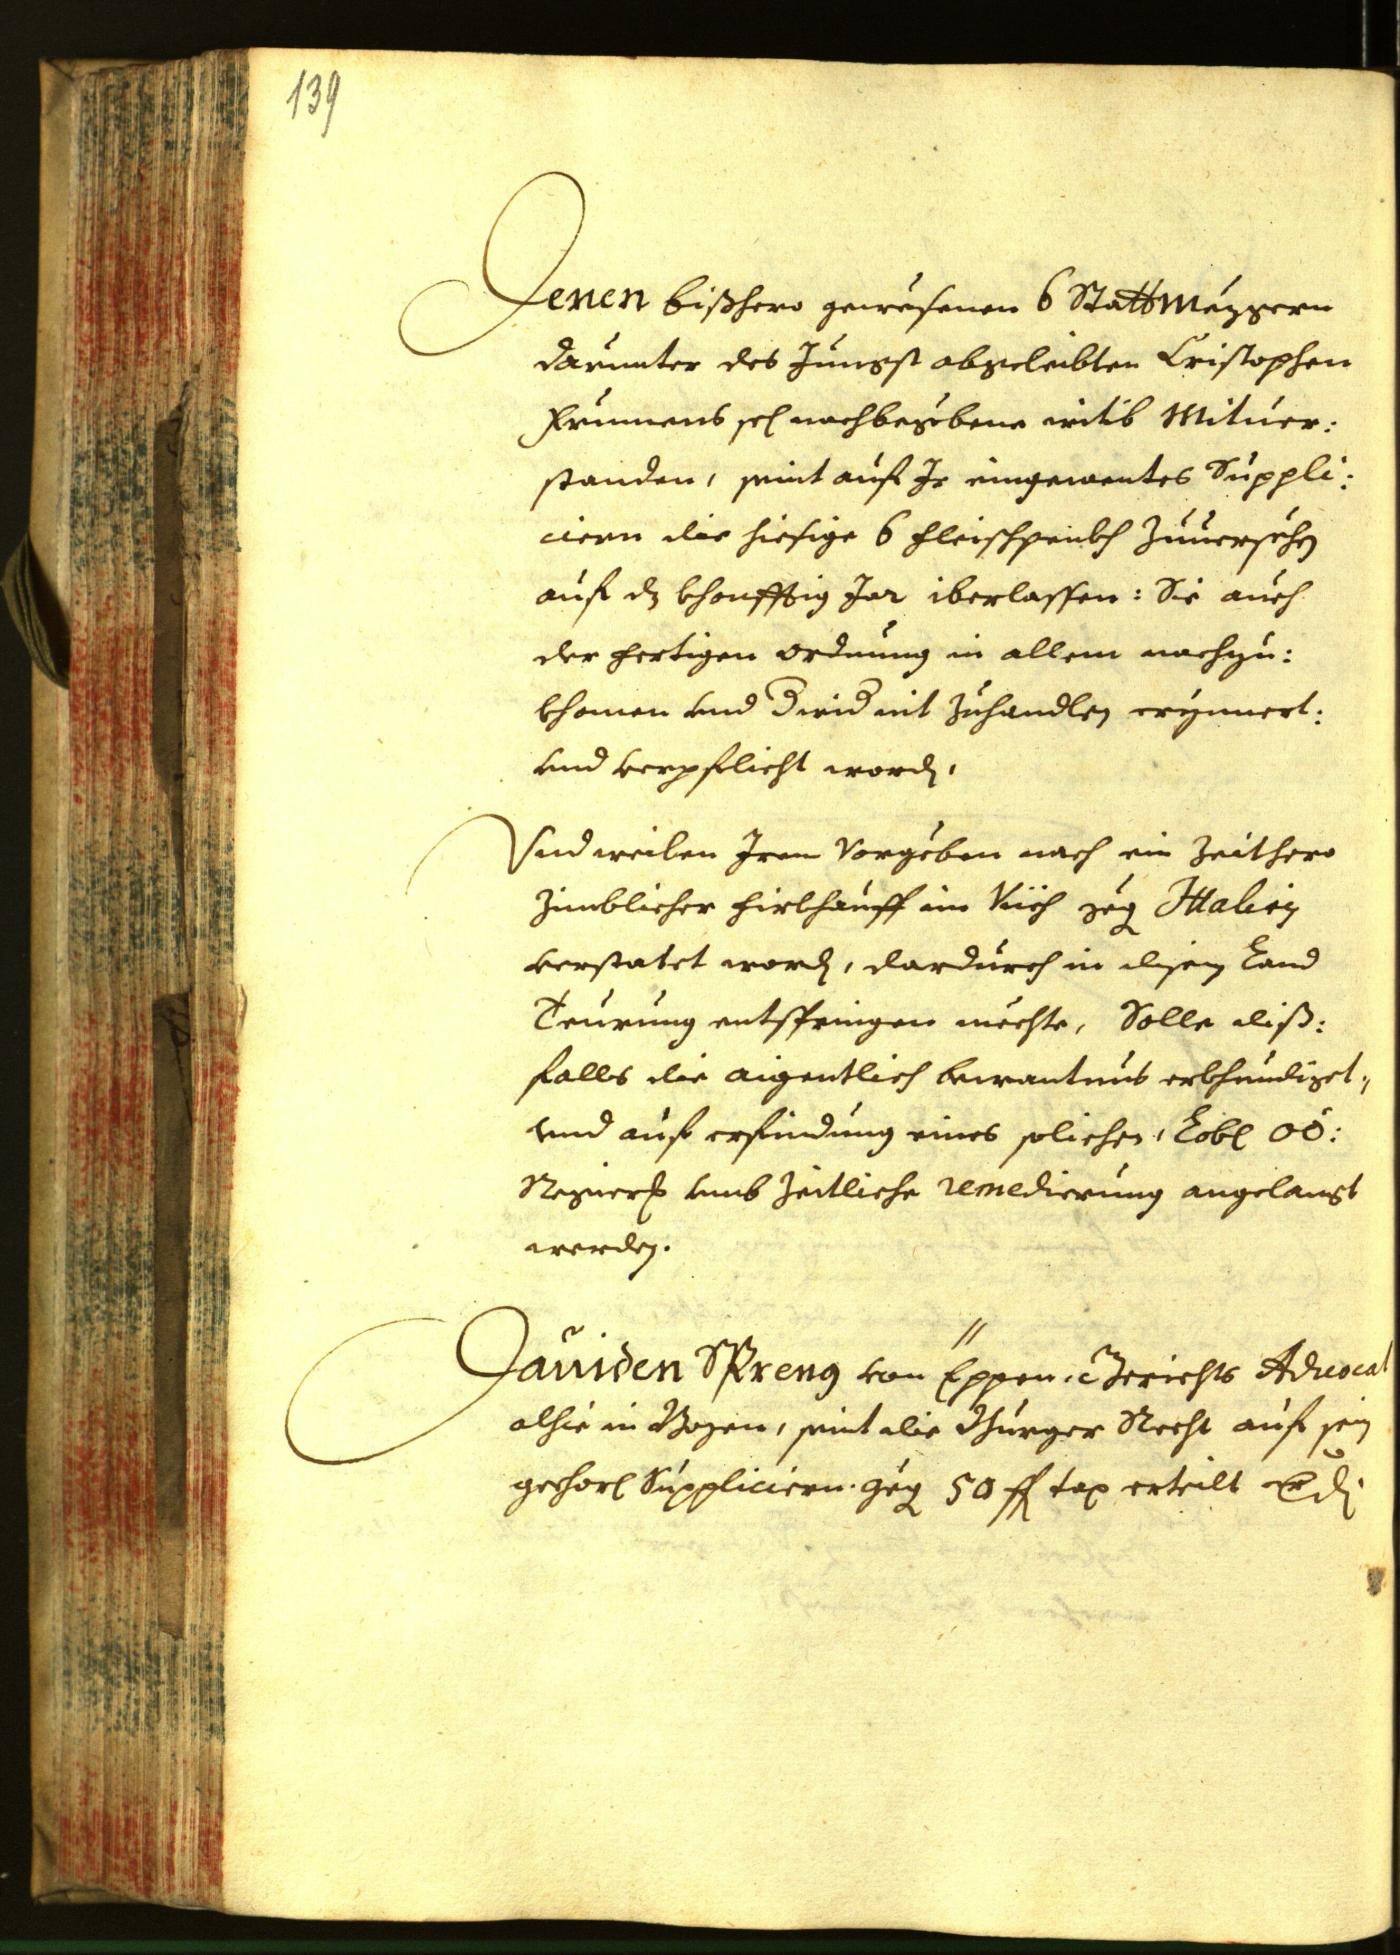 139
Denen bißhero gewesenen 6 Stattmezgern
darunter des Jungst abgeleibten Cristophen
Prunners sel nachbegebene witib Mituer:
standen, seint auf Ir eingewentes Suppli:
ciern die hiesige 6 Fleischpenkh Zuuersehen
auf dz khonfftig Jar iberlassen: Sie auch
der fertigen ordnung in allem nachzu:
khomen vnd darwider nit Zuhandlen erynnert:
vnd verpflicht worden,
Vnd weilen Irem Vorgeben nach ein Zeithero
Zimblicher Firkhauff im Viich geg Ittalien
verstatet worden, dardurch in disem Land
Teurung entspringen mechte, Solle diß:
falls die aigentlich bewantnus erkhundiget,
vnd auf erfindung eines solichen, Lobl OÖ:
Regierung vmb Zeitliche remedierung angelangt
werden.
Dauiden Spreng von Eppen, Gerichts Aduocat
alhie in Bozen, seint die Burger Recht auf sein
gehors Suppliciern geg 50 fl tax erteilt